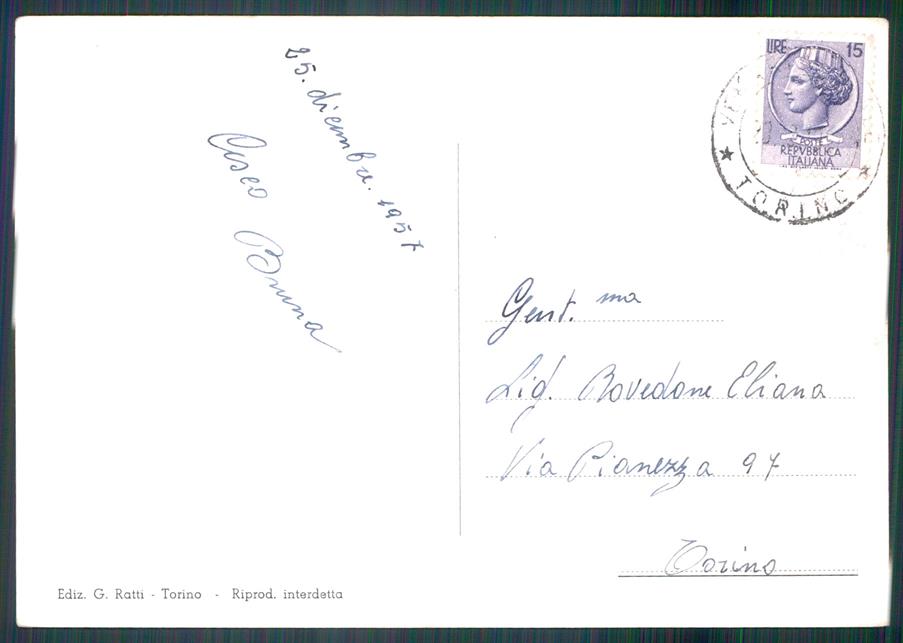 25. dicembre. 1957
Bruna
LIRE 15
POSTE
REPVBBLICA
ITALIANA
TORINO
Gent.ma
Sig. Bovedone Eliana
Via Pianezza 97
Torino
Ediz. G. Ratti - Torino - Riprod. interdetta